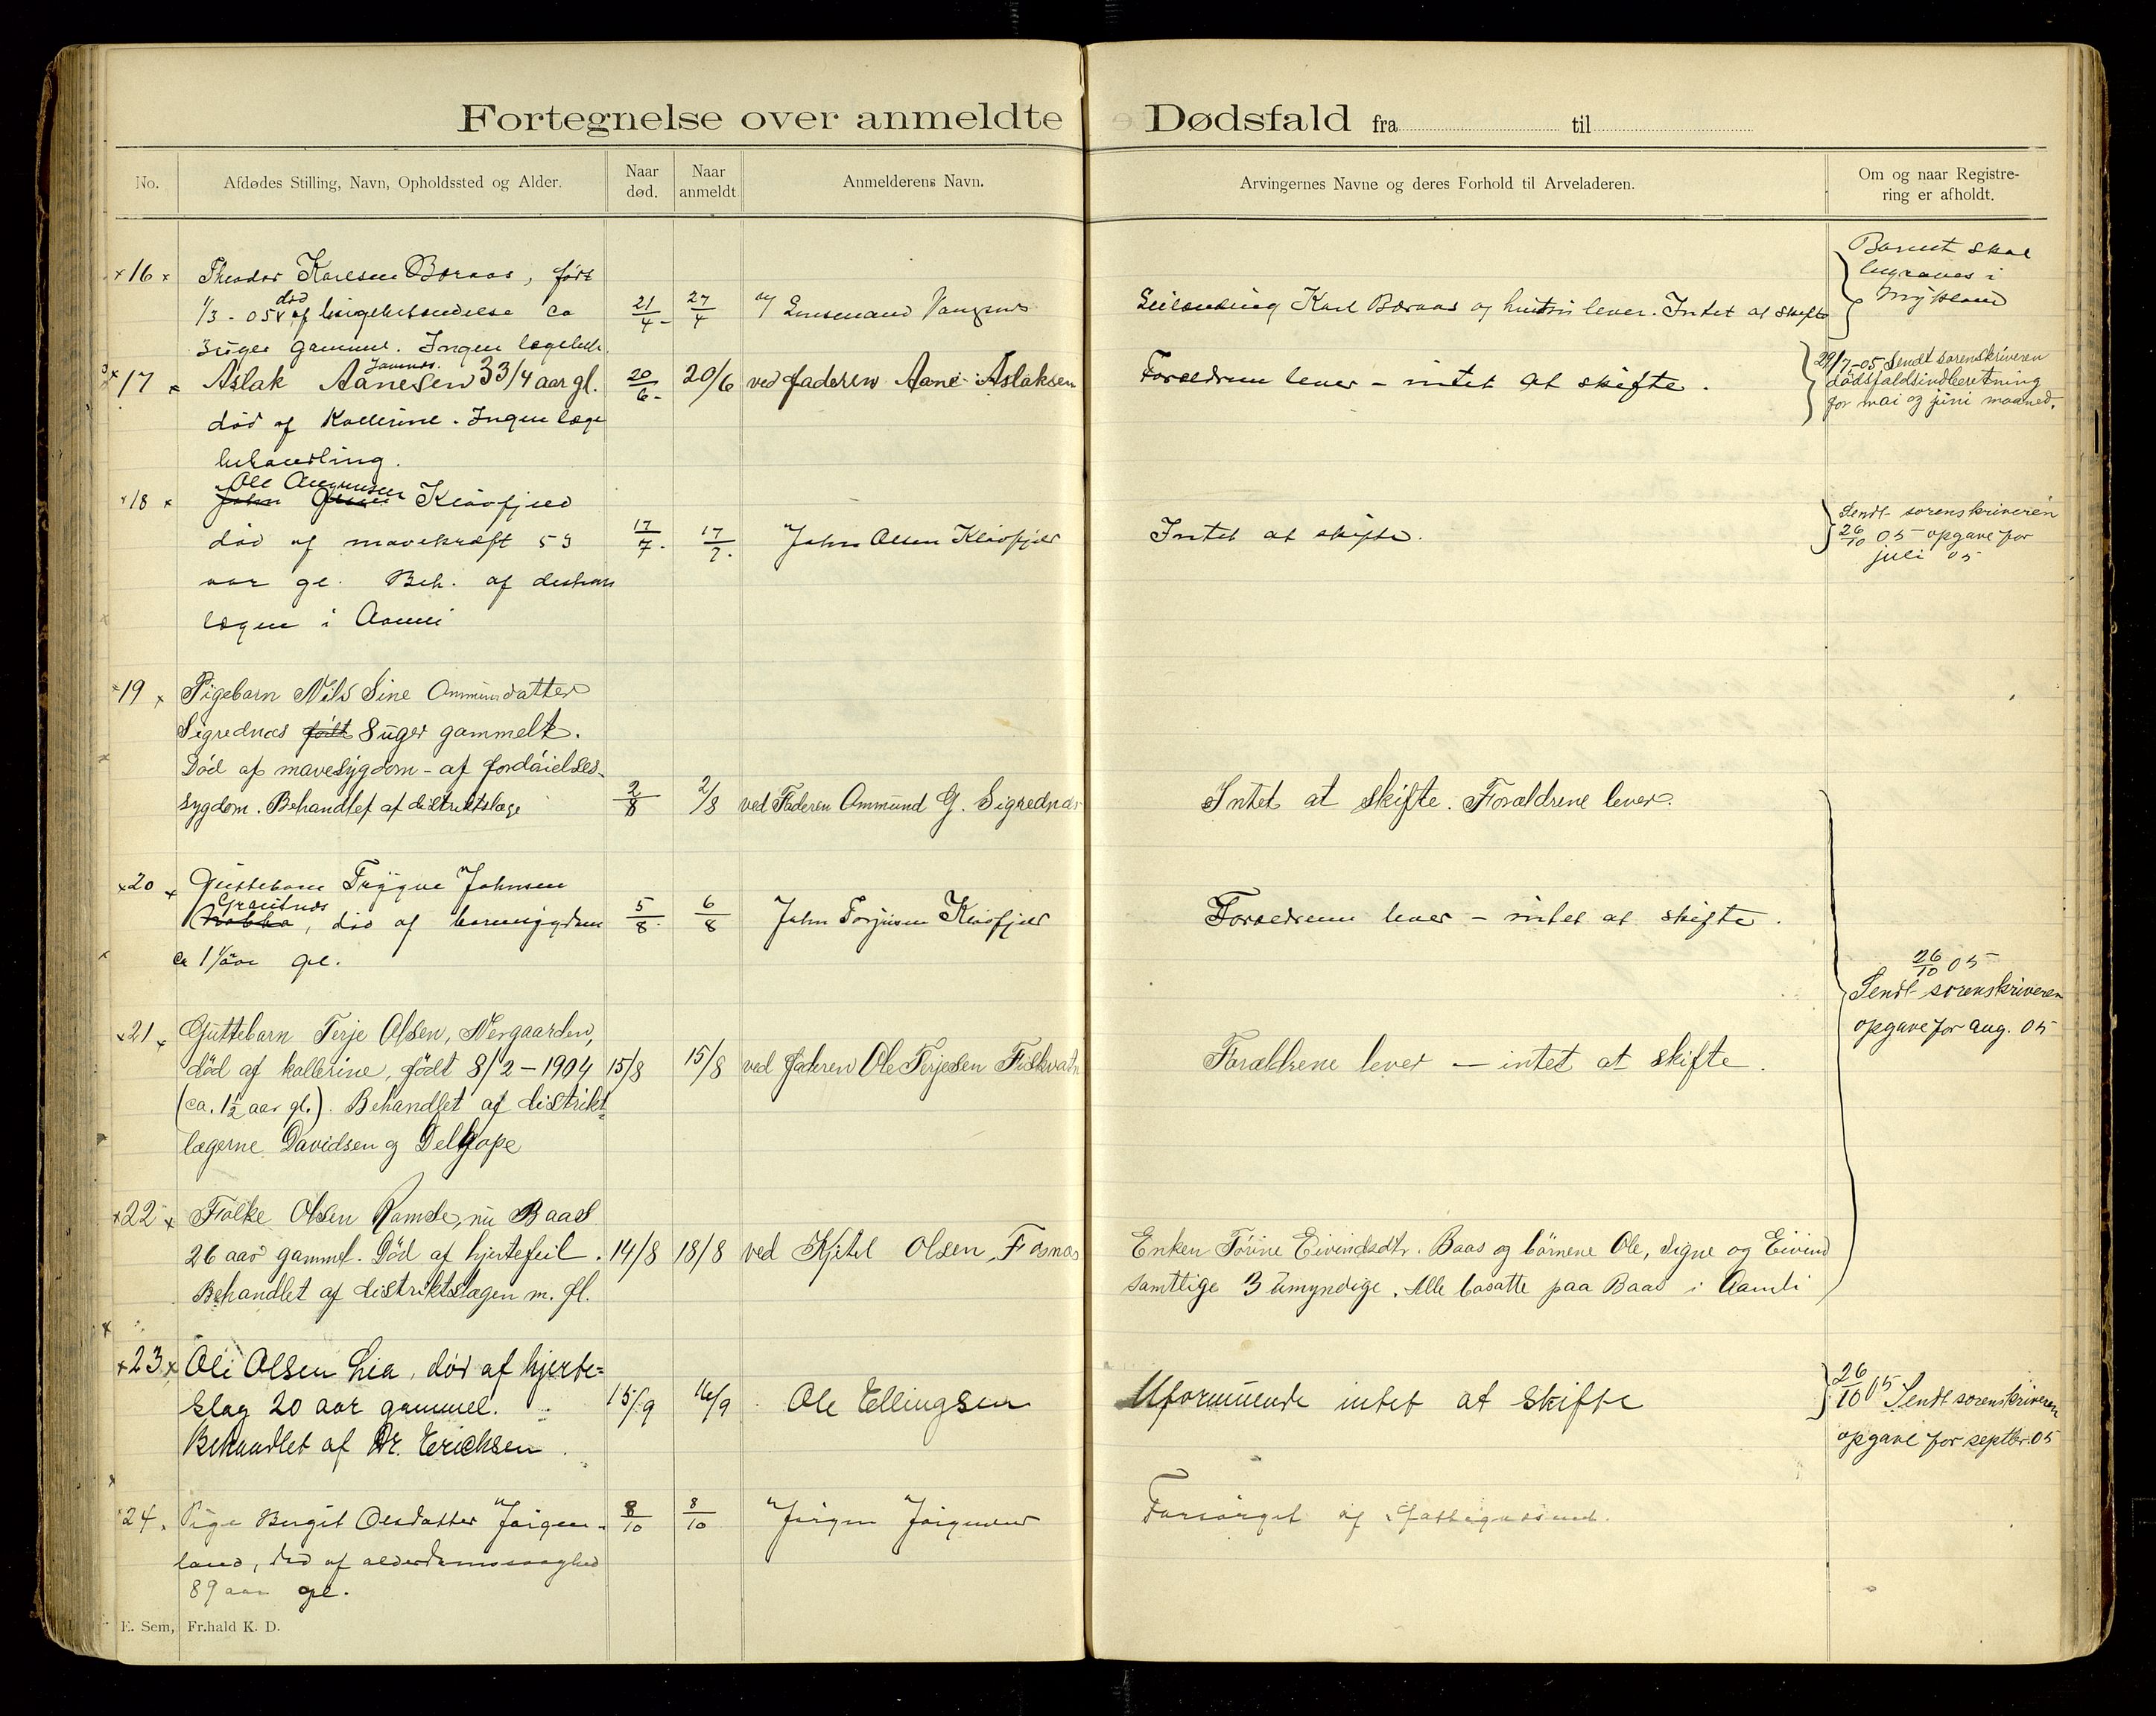 Fortegnelse over anmeldte Dødsfald fra til
No.
Afdødes Stilling, Navn, Opholdssted og Alder.
Naar død.
Naar anmeldt
Anmelderens Navn.
Arvingernes Navne og deres Forhold til Arveladeren.
Om og naar Registre-
ring er afholdt.
16 Theodor Karlsen Boraas, født
1/3 - 05 død af 21/4 27/4 Karl Boraas og lever. Intet at skifte
3 uger gammel. Ingen
Barnet skal
begraves i
Mykland
17 Aslak Aanesen 3 3/4 aar gl. 20/6 20/6 ved faderen Aane Aslaksen Foreldrene lever - intet at skifte.
død af Kollerine. Ingen læge
behandling.
29/7-05 Sendt sorenskriveren
dødsfaldsindberetning
for mai og juni maaned.
Ole
18 John Olsen Kløvfjeld
død af mavekræft 53 17/7 17/7 John Olsen Kløvfjeld Intet at skifte.
aar gl. Beh. af distrikts
lægen i Aamli
Sendt sorenskriveren
26/10 05 opgave for
juli 05
19 Pigebarn Nils Sine Ommundsdatter
Sigrednes født 8 uger gammelt.
Død af mavesygdom - af fordøielses-
sygdom. Behandlet af distriktslæge 2/8 2/8 ved Faderen Ommund G. Sigrednes Intet at skifte. Forældrene lever.
20 Guttebarn Trygve Johnsen
, død af 5/8 6/8 John Kløvfjeld Foreldrene lever - intet at skifte.
ca 1 gl.
26/10 05
Sendt sorenskriveren
opgave for aug. 05
21 Guttebarn Terje Olsen, Nergaarden,
død af kollerine, født 8/2 - 1904 15/8 15/8 ved faderen Ole Terjesen Fiskvatn Forældrene lever - intet at skifte.
(ca. 1 1/2 aar gl.). Behandlet af distrikt=
lægerne Davidsen og
22 Folke Olsen Ramse, nu Baas
26 aar gammel. Død af hjertefeil. 14/8 18/8 ved Kjetel Olsen, Fosnes Enken Torine Eivindsdtr. Baas og børnene Ole, Signe og Eivind
Behandlet af distriktslægen m. fl. samtlige 3 umyndige. Alle bosatte paa Baas i Aamli
23 Oli Olsen Lia, død af hjerte=
slag 20 aar gammel. 15/9 16/9 Ole Ellingsen Uformuende intet at skifte
Behandlet af Dr. Ericksen.
26/10 05 Sendt sorenskriveren
opgave for septbr. 05
24. Pige Birgit Olsdatter Jørgen-
land, død af alderdomssvaghed 8/10 8/10 Jørgen Forsørget af fattigvæsenet.
89 aar gl.
E. Sem, Fr.hald K. D.